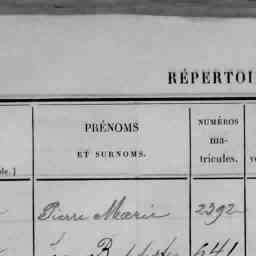 RÉPERTOI
PRÉNOMS
ET SURNOMS.
NUMÉROS
ma-
tricules.
Pierre Marie 2392
Baptiste 641